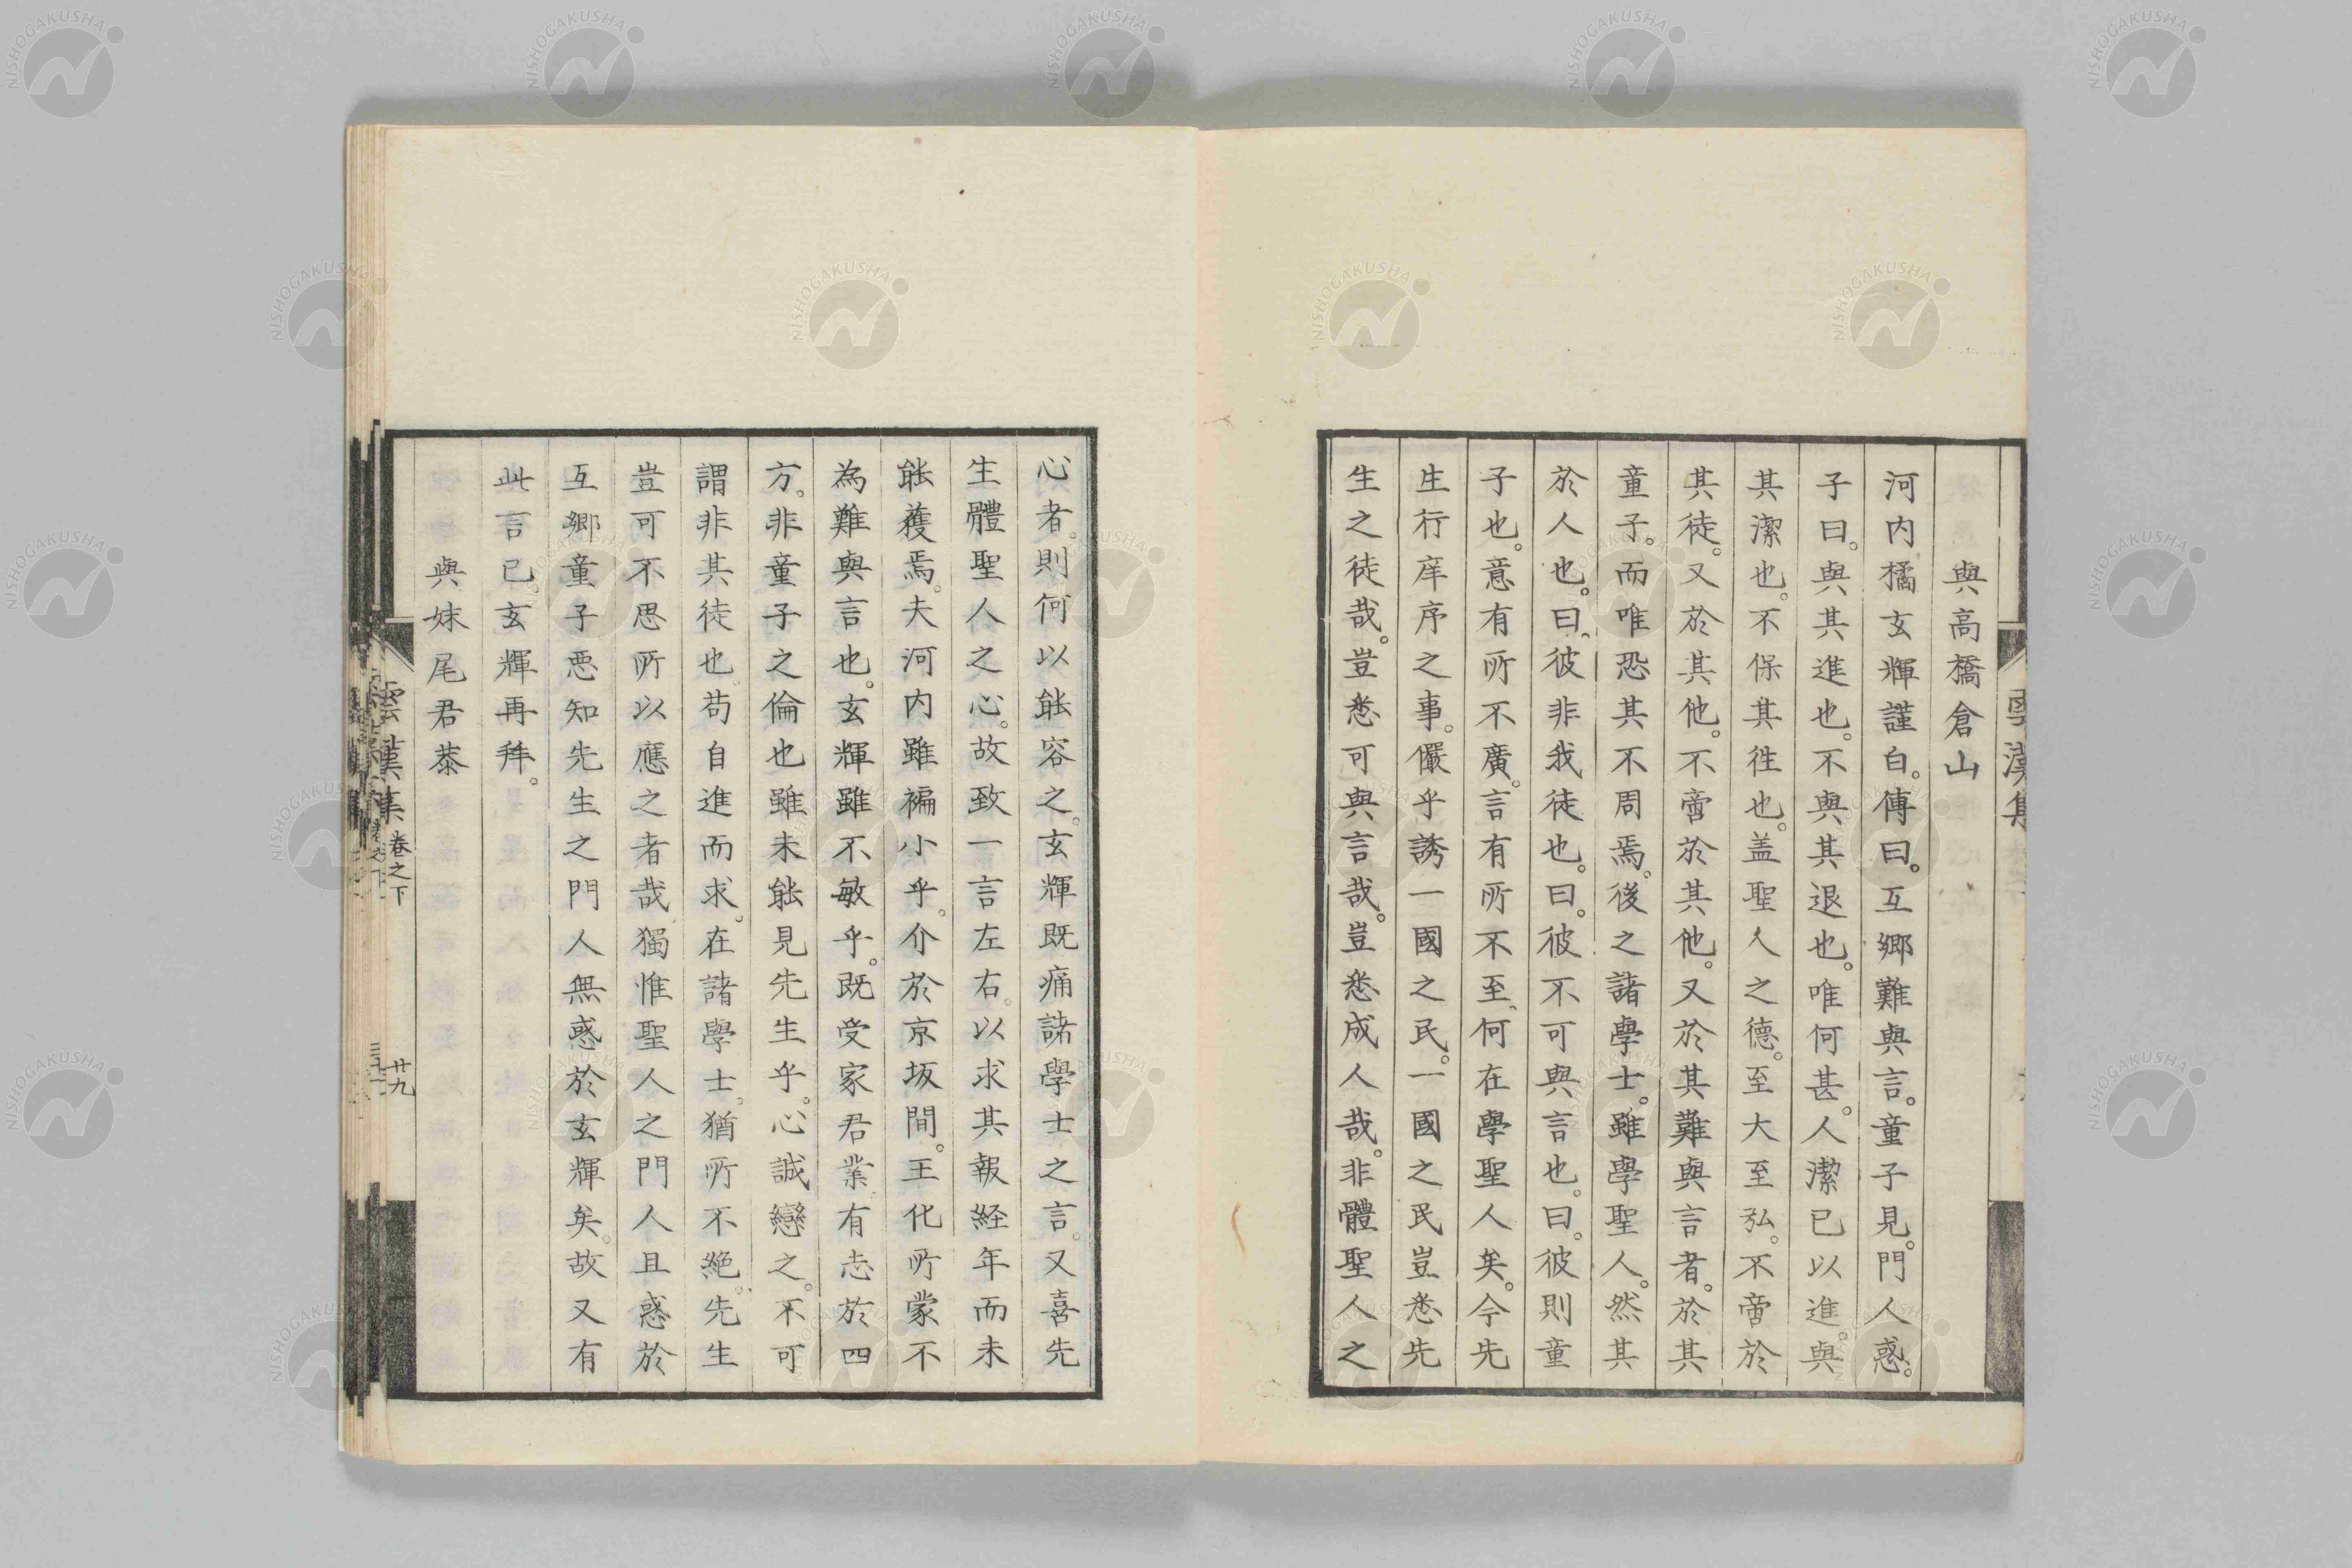 與高橋倉山
河内橘玄輝謹白。傳曰。互鄉難與言。童子見。門人惑。
子曰。與其進也。不與其退也。唯何甚。人潔已以進。與
其潔也。不保其徃也。盖聖人之德。至大至弘。不啻於
其徒。又於其他。不啻於其他。又於其難與言者。於其
童子。而唯恐其不周焉。後之諸學士。雖學聖人。然其
於人也。曰。彼非我徒也。曰。彼不可與言也。曰。彼則童
子也。意有所不廣。言有所不至。何在學聖人矣。今先
生行庠序之事。儼乎誘一國之民。一國之民豈悉先
生之徒哉。豈悉可與言哉。豈悉成人哉。非體聖人之
心者。則何以能容之。玄輝既痛諸學士之言。又喜先
生體聖人之心。故致一言左右。以求其報経年而未
能獲焉。夫河内雖褊小乎。介於京坂間。王化所蒙不
為難與言也。玄輝雖不敏乎。既受家君業。有志於四
方。非童子之倫也雖未能見先生乎。心誠戀之。不可
謂非其徒也。苟自進而求。在諸學士。猶所不絶。先生
豈可不思所以應之者哉。獨惟聖人之門人且惑於
互鄉童子悪知先生之門人無惑於玄輝矣。故又有
此言已。玄輝再拜。
與妹尾君泰
雲漢集
卷之下
廿九